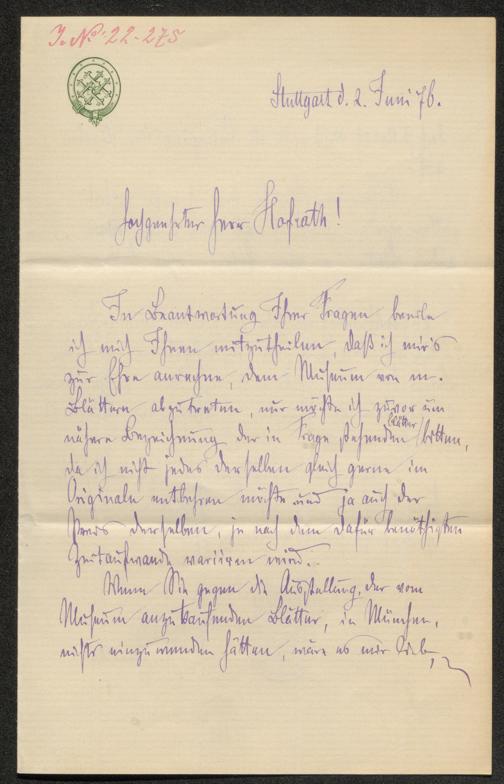 J. № 22-275
Stuttgart d. 2. Juni 76.
Hochgeehrter Herr Hofrath!
In Beantwortung Ihrer Fragen beeile
ich mich Ihnen mitzutheilen, daß ich mir's
zur Ehre anrechne, dem Museum von m.
Blättern abzutreten, nur möchte ich zuvor um
nähere Bezeichnung der in Frage stehenden Blätter bitten,
da ich nicht jedes derselben gleich gerne im
Originale entbehren möchte und ja auch der
Preis derselben, je nach dem dafür benöthigten
Zeitaufwande variiren wird.
Wenn Sie gegen die Ausstellung, der vom
Museum anzukaufenden Blätter, in München,
nichts einzuwenden hätten, wäre es mir lieb,